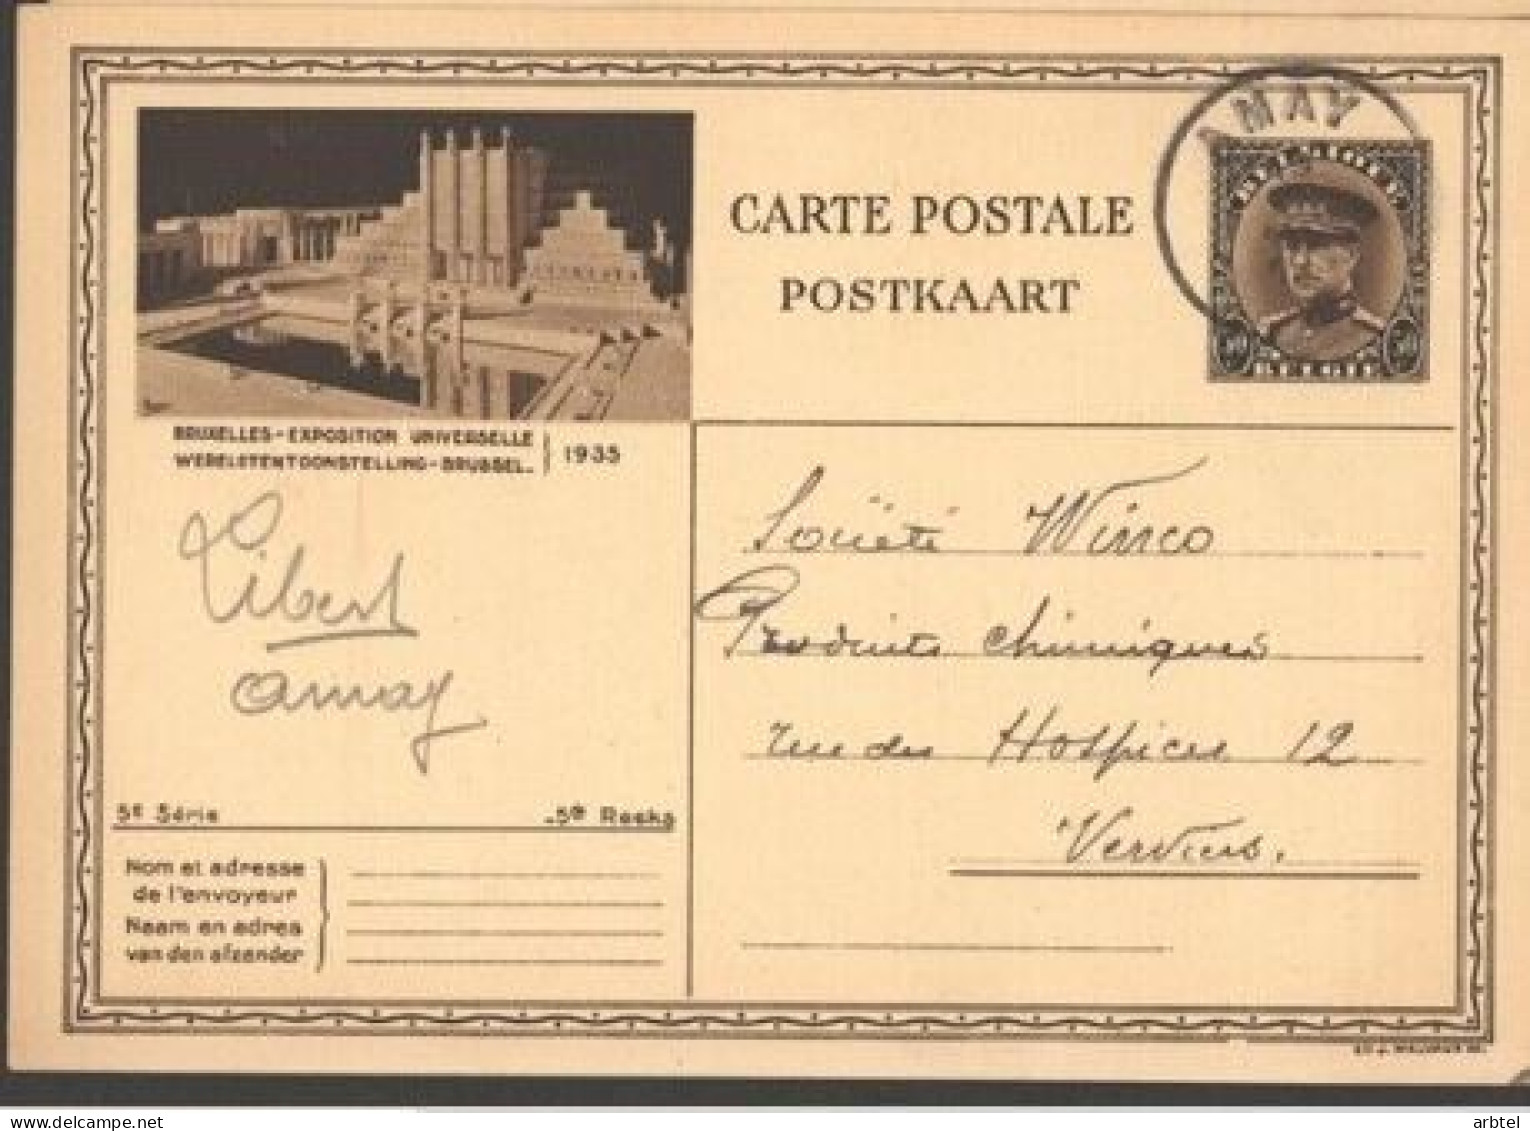 AMAY
BELGIQUE
50 50
BELGIE
CARTE POSTALE
POSTKAART
BRUXELLES - EXPOSITION UNIVERSELLE
WERELDTENTOONSTELLING - BRUSSEL. 1935
Libert
Amay
Société Winco
Produits chimiques
rue des Hospices 12
Verviers.
5e Série
5de Reeks
Nom et adresse
de l'envoyeur
Naam en adres
van den afzender
delcampe.net
arbtel